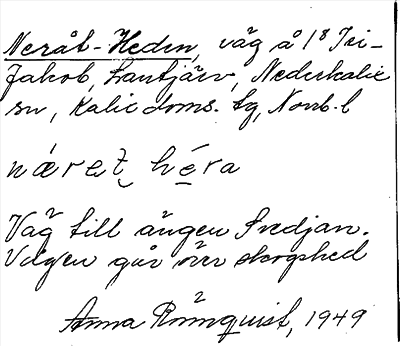 Neråt-Heden, väg å 1⁸ Fri-
Jakob, Lantjärv, Nederkalix
sn, Kalix doms. tg, Norrb. l
nǽreṭ héra
Väg till ängen Sredjan.
Vägen går över skogshed
Anna Rönnquist, 1949